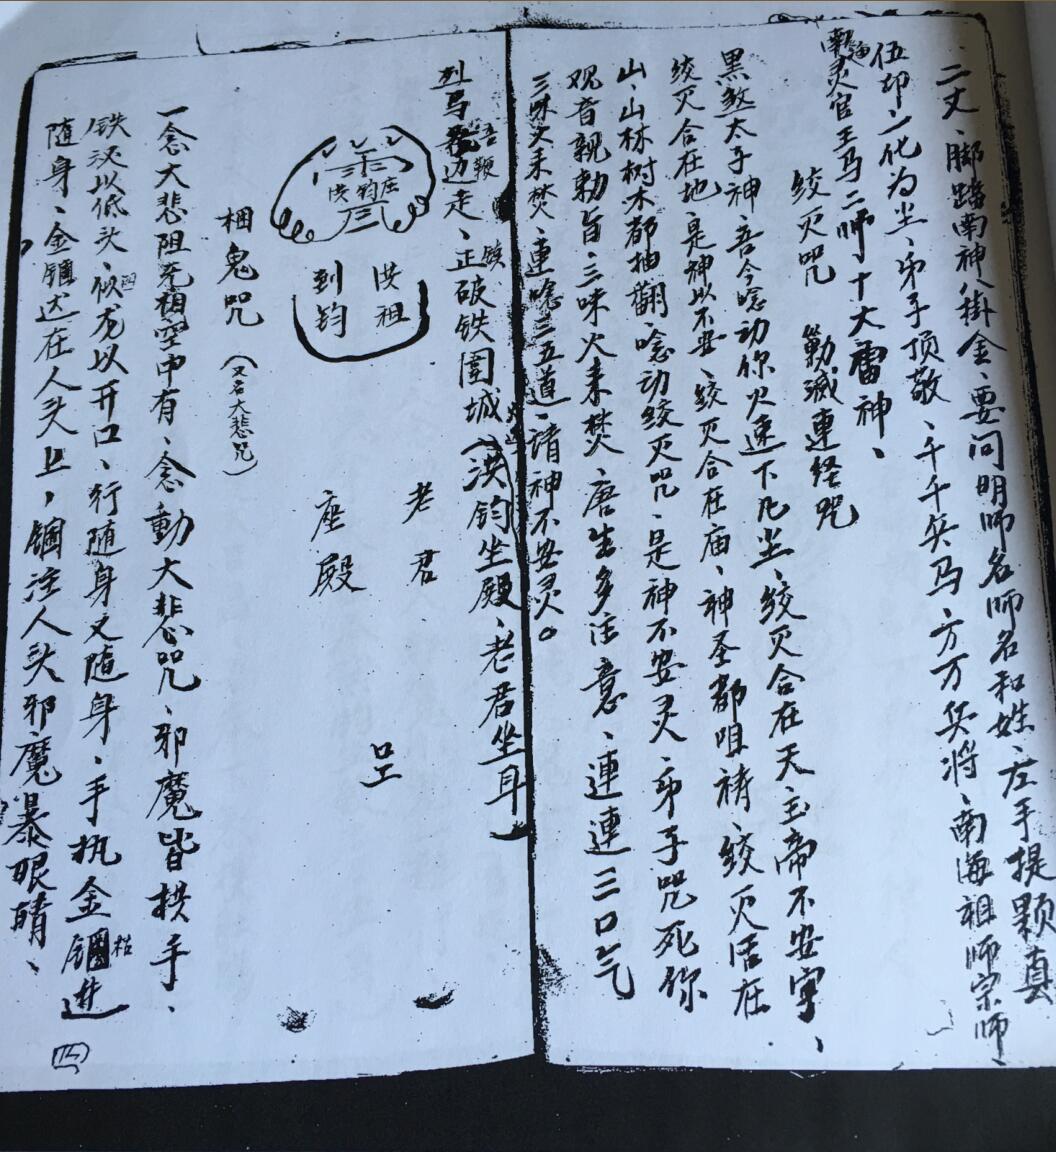 二丈、脚踏南神八掛金、要问明师名师名和姓、左手提颗真
伍印、一化为尘、弟子顶敬、千千兵马、方万兵将、南海祖师宗师、
南海灵官王马二师十大雷神、
绞灭咒 勦滅連经咒
黑煞太子神、吾今唸动你火速下凡尘、绞灭合在天、玉帝不安宁、
绞灭合在地、是神以不安、绞灭合在庙、神圣都咀祷、绞灭活在
山、山林树木都抽翻、唸动绞灭咒、是神不安灵、弟子咒死你
观音親勅旨、三味火来焚、唐生多注意、連連三口气
三味火来焚、連唸三五道、諸神不安灵。
列马边走、正破铁围城（洪钧坐殿、老君坐身）
吾鞭
洪祖
到钧
老君
座殿
梱鬼咒（又名大悲咒）
一念大悲阻死祖空中有、念動大悲咒、邪魔皆拱手、
铁汉以低头、似龙以开口、行随身文随身、手执金锢进
随身、金锢送在人头上，锢注人头邪魔暴眼睛、
四